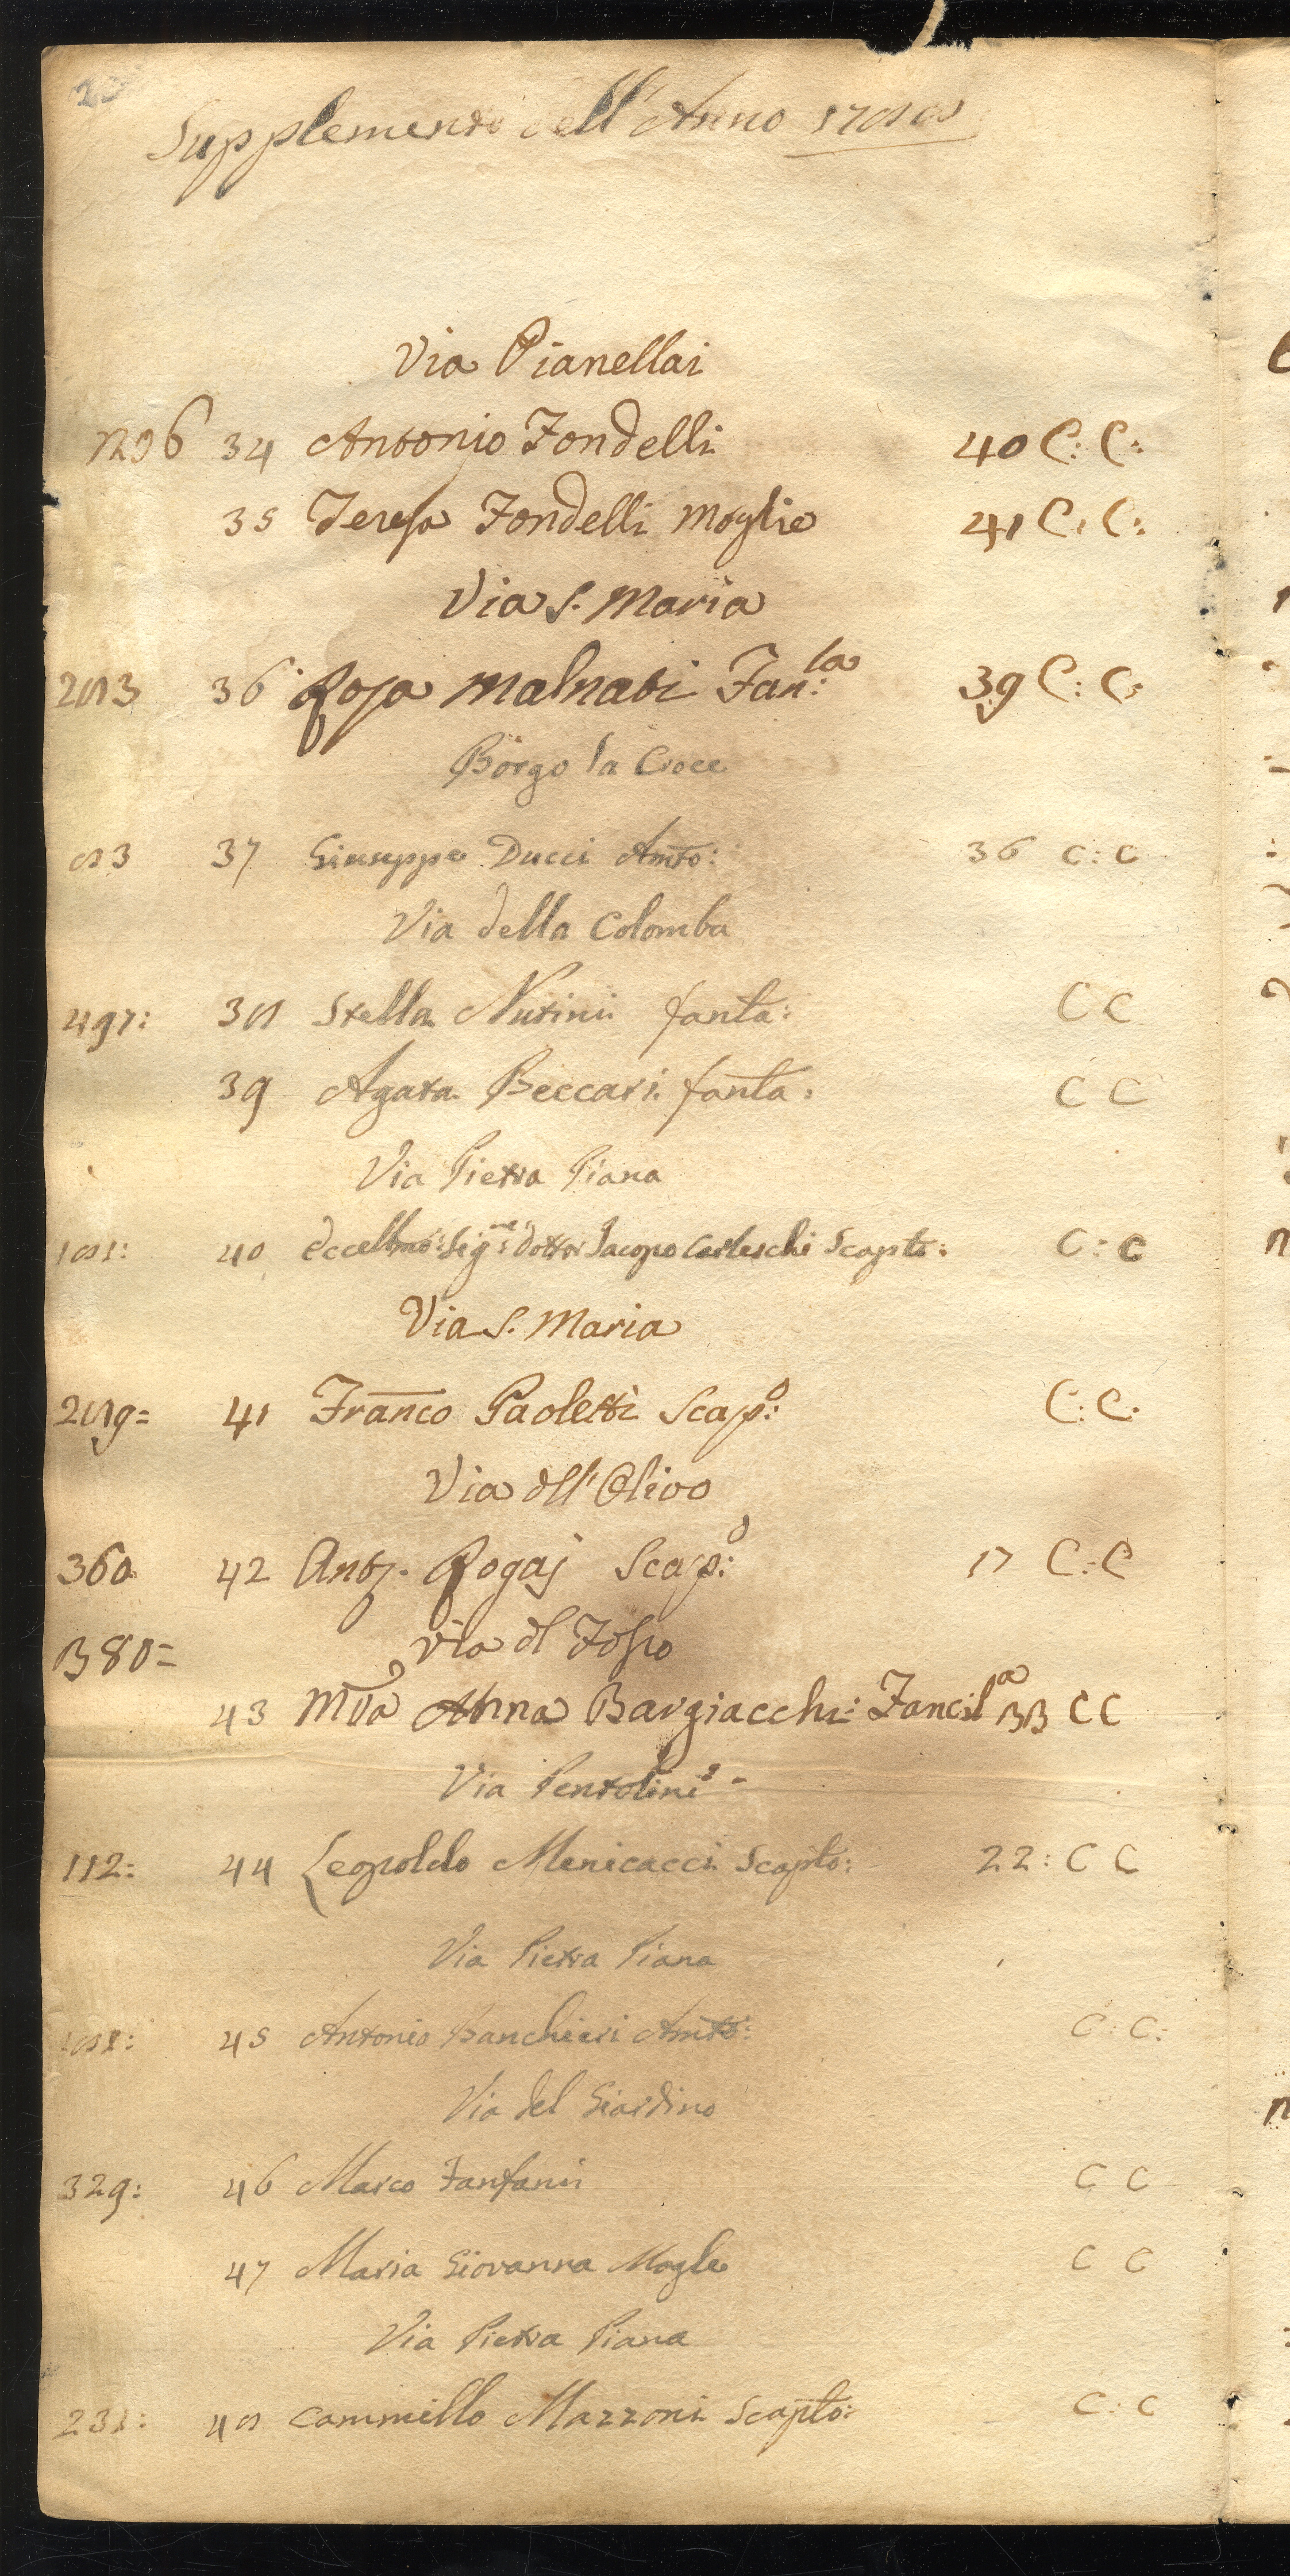 Supplemento dell'Anno 1788
Via Pianellai
34 Antonio Fondelli 40 C: C:
35 Teresa Fondelli Moglie 41 C: C:
Via S. Maria
283 36 Rosa Malnati Fan:la 39 C: C:
Borgo la Croce
83 37 Giuseppe Ducci Amto: 36 C: C
Via della Colomba
497: 38 Stella Nutini fanta: C C
39 Agata Beccari fanta: C C
Via Pietra Piana
181: 40 Eccellmo: Sigre: Dottor Jacopo Carleschi Scapto: C: C
Via S. Maria
289= 41 Franco Paoletti Scap:o C: C:
Via dll'Olivo
360 42 Anto. Rogai Scap:o 17 C: C
380= Via dl Fosso
43 Mra Anna Bargiacchi: Fancila 33 C C
Via Pentolini
112: 44 Leopoldo Menicacci Scapto: 22: C C
Via Pietra Piana
188: 45 Antonio Banchieri Amto: C: C:
Via del Giardino
329: 46 Marco Fanfani C C
47 Maria Giovanna Mogle C C
Via Pietra Piana
231: 48 Cammillo Mazzoni Scapto: C: C